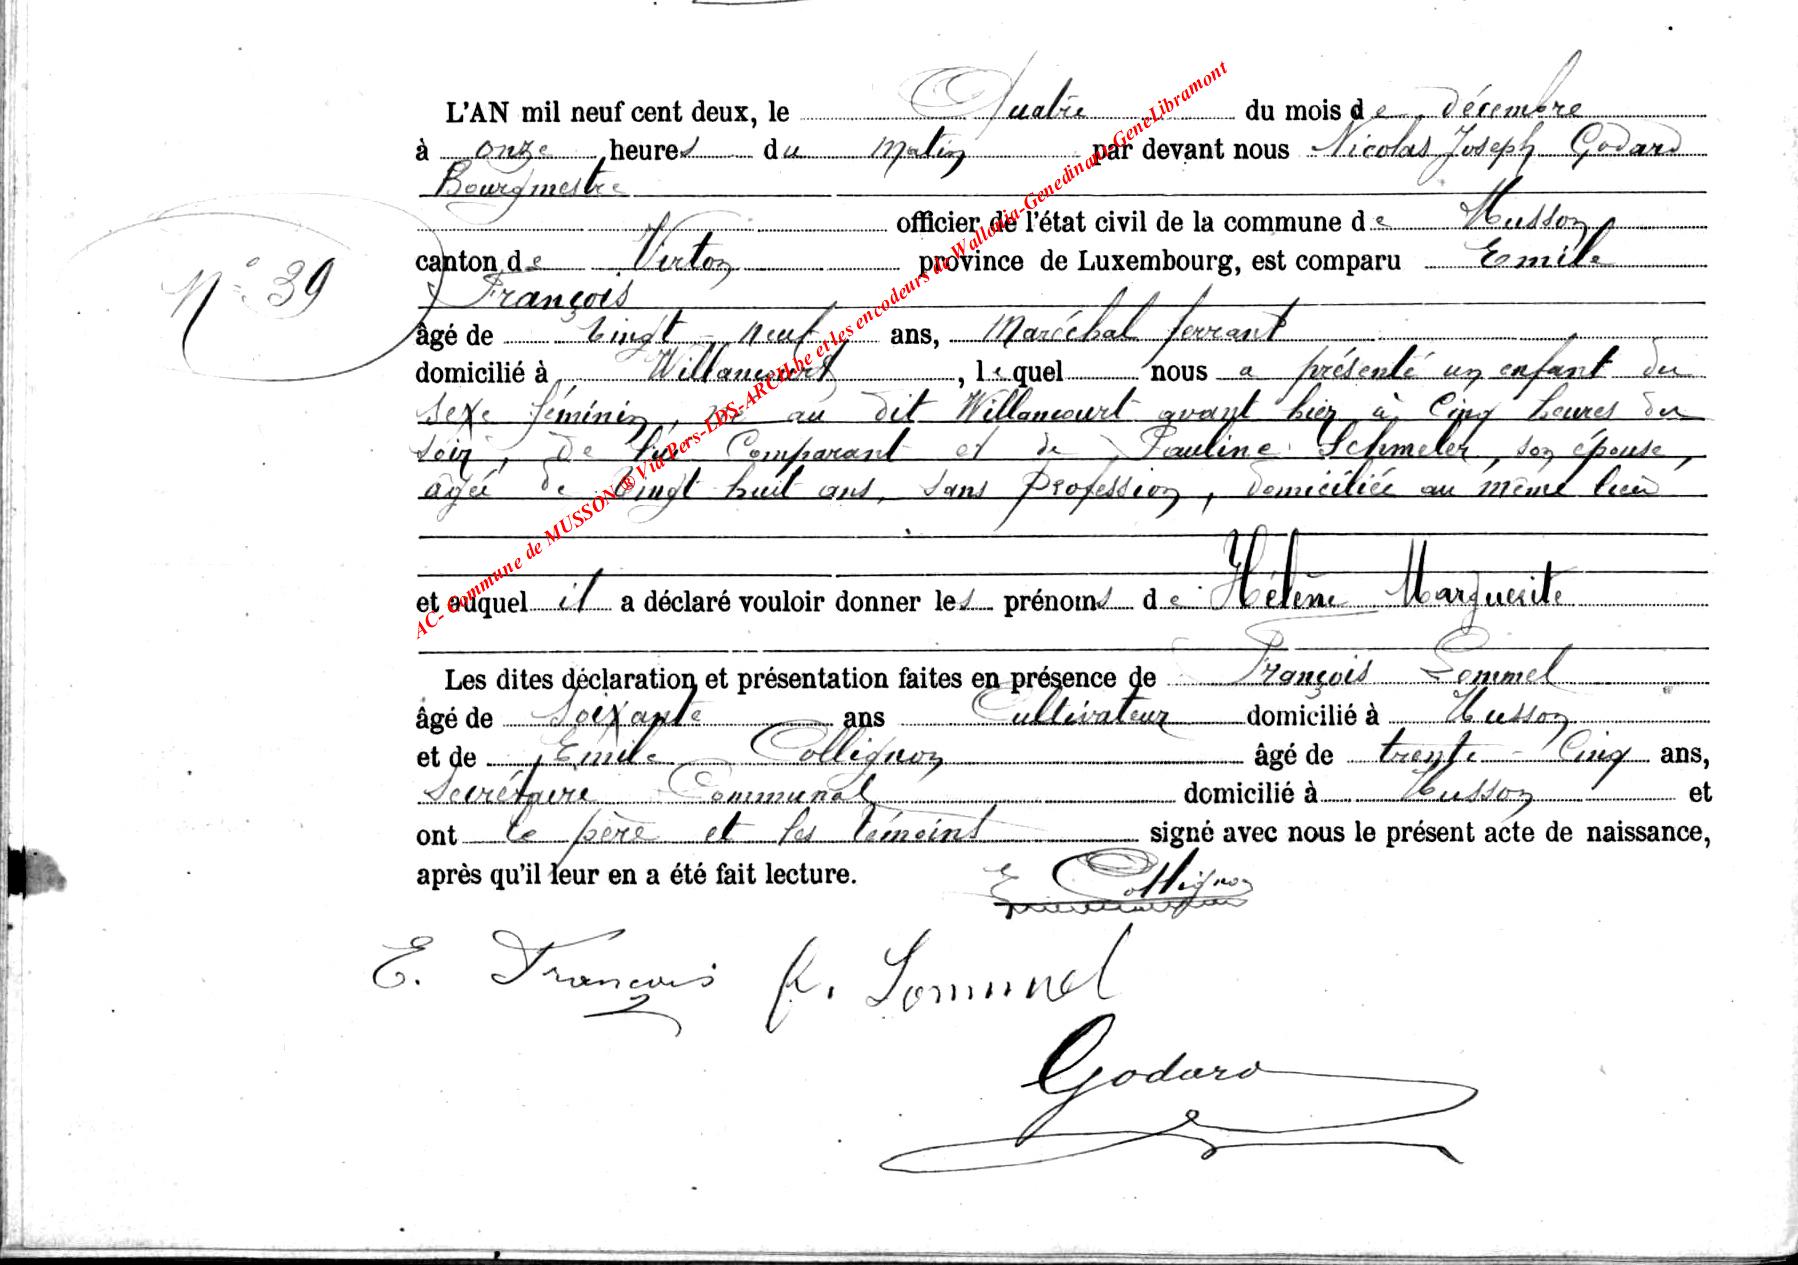 L'AN mil neuf cent deux, le Quatre du mois de décembre
à onze heures du matin par devant nous Nicolas Joseph Godard
Bourgmestre
officier de l'état civil de la commune de Musson
canton de Virton province de Luxembourg, est comparu Emile
François
N° 39
âgé de vingt-neuf ans, Maréchal ferrant
domicilié à Willancourt, lequel nous a présenté un enfant du
sexe féminin, né au dit Willancourt avant hier à Cinq heures du
soir, de lui Comparant et de Pauline Schmeler, son épouse,
âgée de vingt huit ans, sans profession, domiciliée au même lieu
et auquel il a déclaré vouloir donner les prénoms de Hélène Marguerite
Les dites déclaration et présentation faites en présence de François Lommel
âgé de Soixante ans Cultivateur domicilié à Musson
et de Emile Collignon âgé de trente-Cinq ans,
Secrétaire Communal domicilié à Musson et
ont le père et les témoins signé avec nous le présent acte de naissance,
après qu'il leur en a été fait lecture.
E Collignon
E. François f. Lommel
Godard
AC- Commune de MUSSON ® Via Pers-LDS-ARCH.be et les encodeurs de Wallonia-Genedinant-GeneLibramont